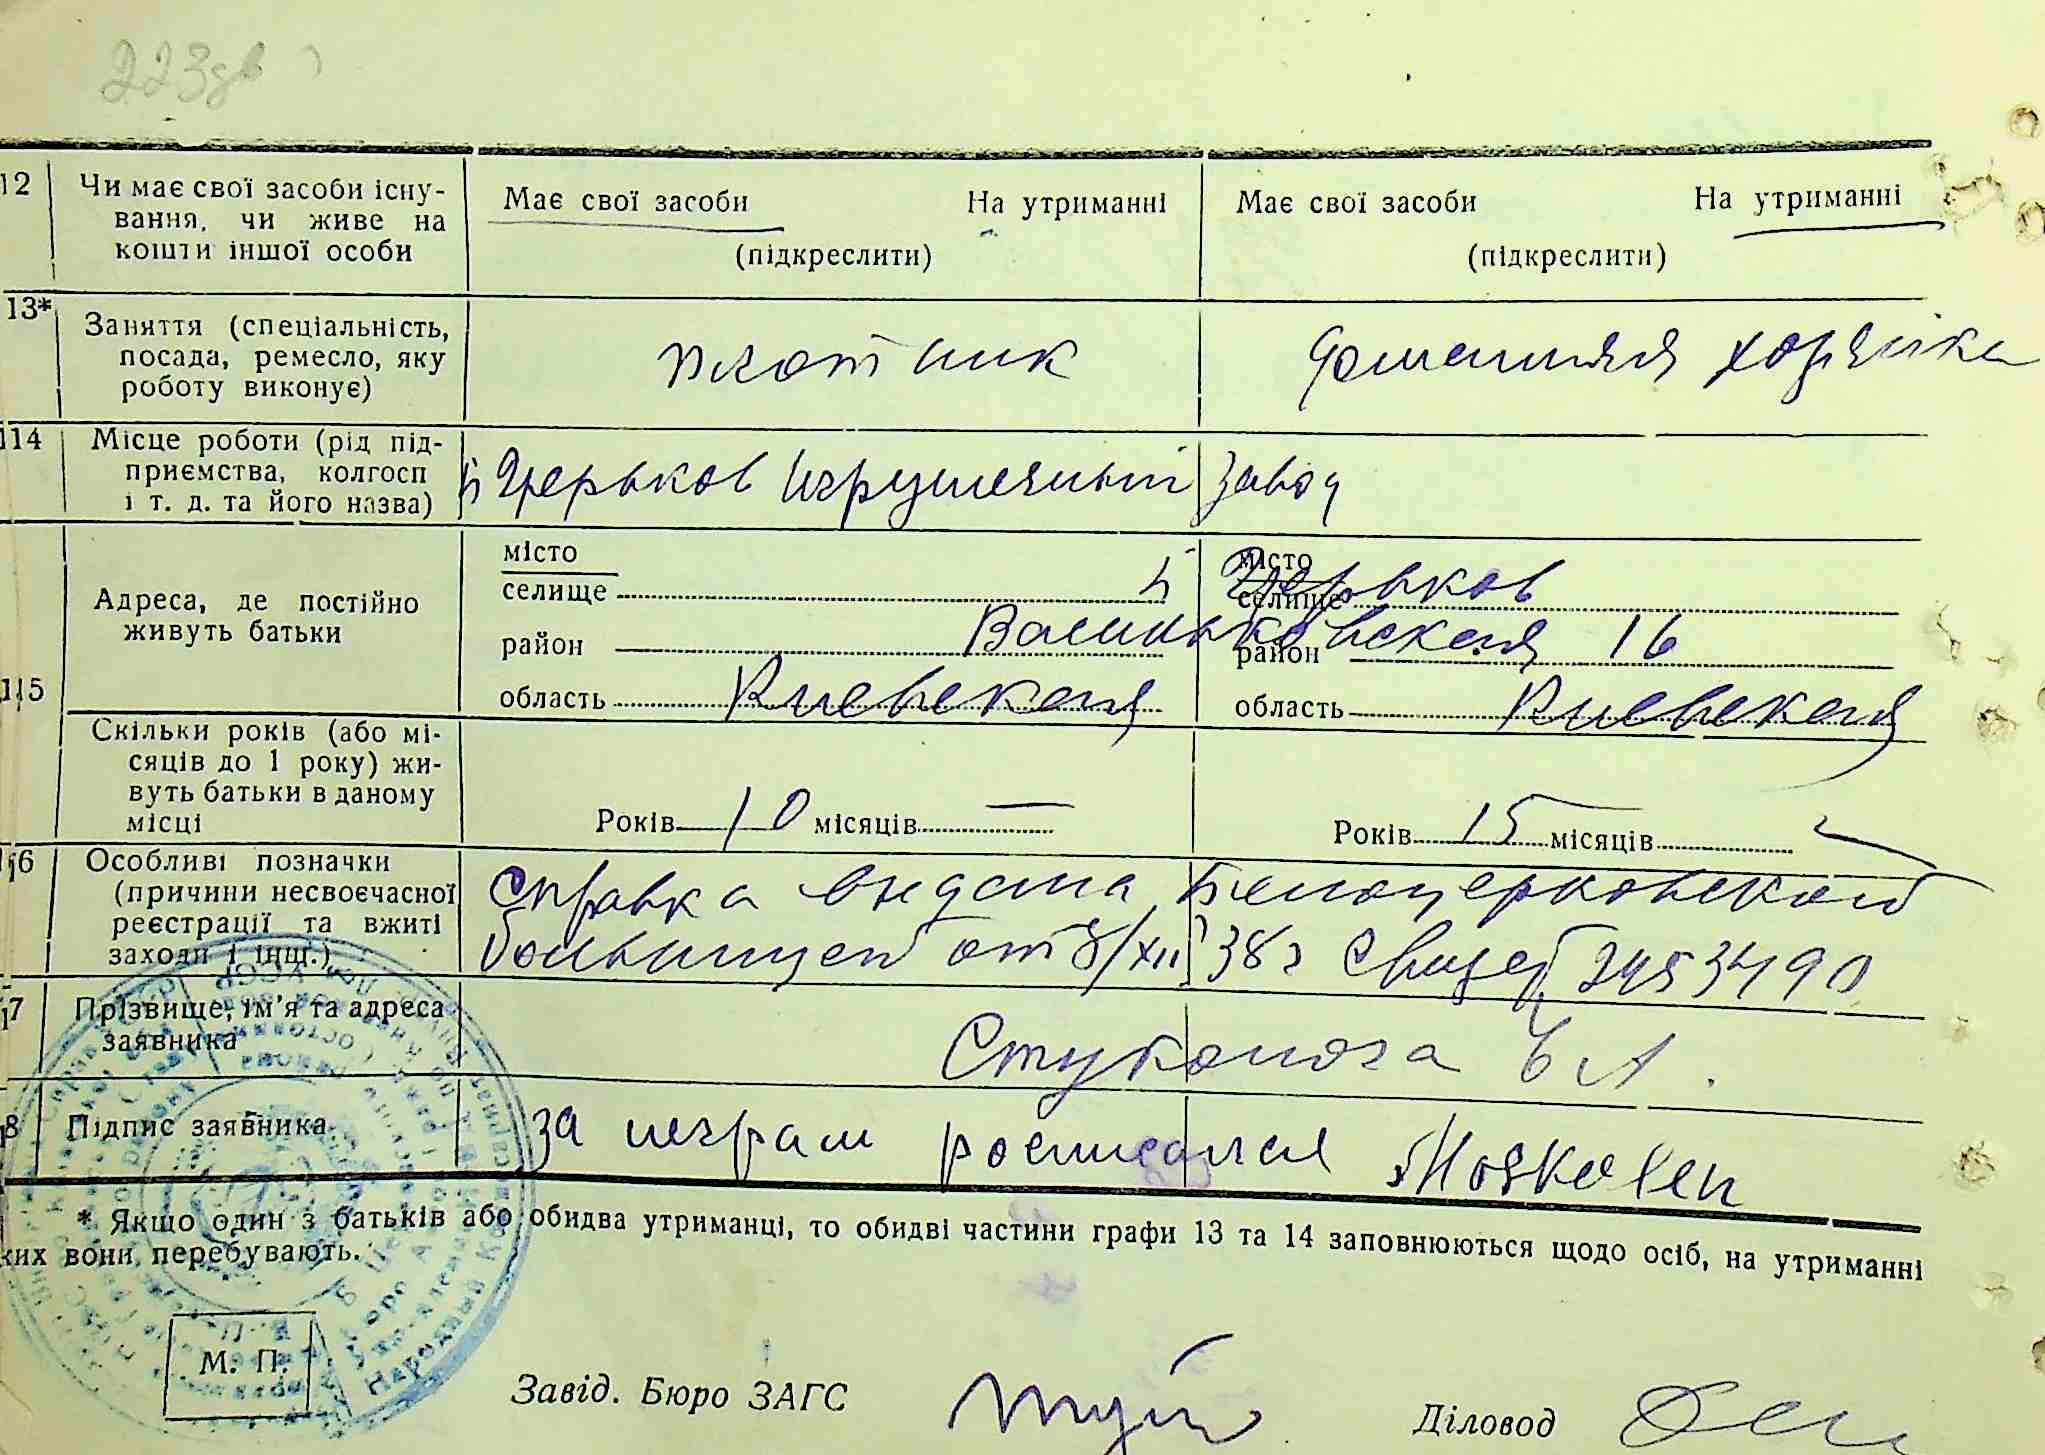 223
12 Чи має свої засоби існу- Має свої засоби На утриманні Має свої засоби На утриманні
вання, чи живе на
кошти іншої особи (підкреслити) (підкреслити)
13* Заняття (спеціальність, плотник домашняя хозяйка
посада, ремесло, яку
роботу виконує)
14 Місце роботи (рід під- Б Церьков Игрушечный завод
приємства, колгосп
і т. д. та його назва)
15 Адреса, де постійно місто місто
живуть батьки селище Б селище Церьков
район район Васильковская 16
область Киевская область Киевская
Скільки років (або мі-
сяців до 1 року) жи-
вуть батьки в даному
місці Років 10 місяців — Років 15 місяців —
16 Особливі позначки Справка видана Белоцерковской
(причини несвоєчасної больницей от 8/XII 38 г Свидет
реєстрації та вжиті
заходи і інщ.)
17 Прізвище, ім'я та адреса
заявника
18 Підпис заявника за неграм росписался
* Якщо один з батьків або обидва утриманці, то обидві частини графи 13 та 14 заповнюються щодо осіб, на утриманні
ких вони перебувають.
М. П.
Завід. Бюро ЗАГС
Діловод